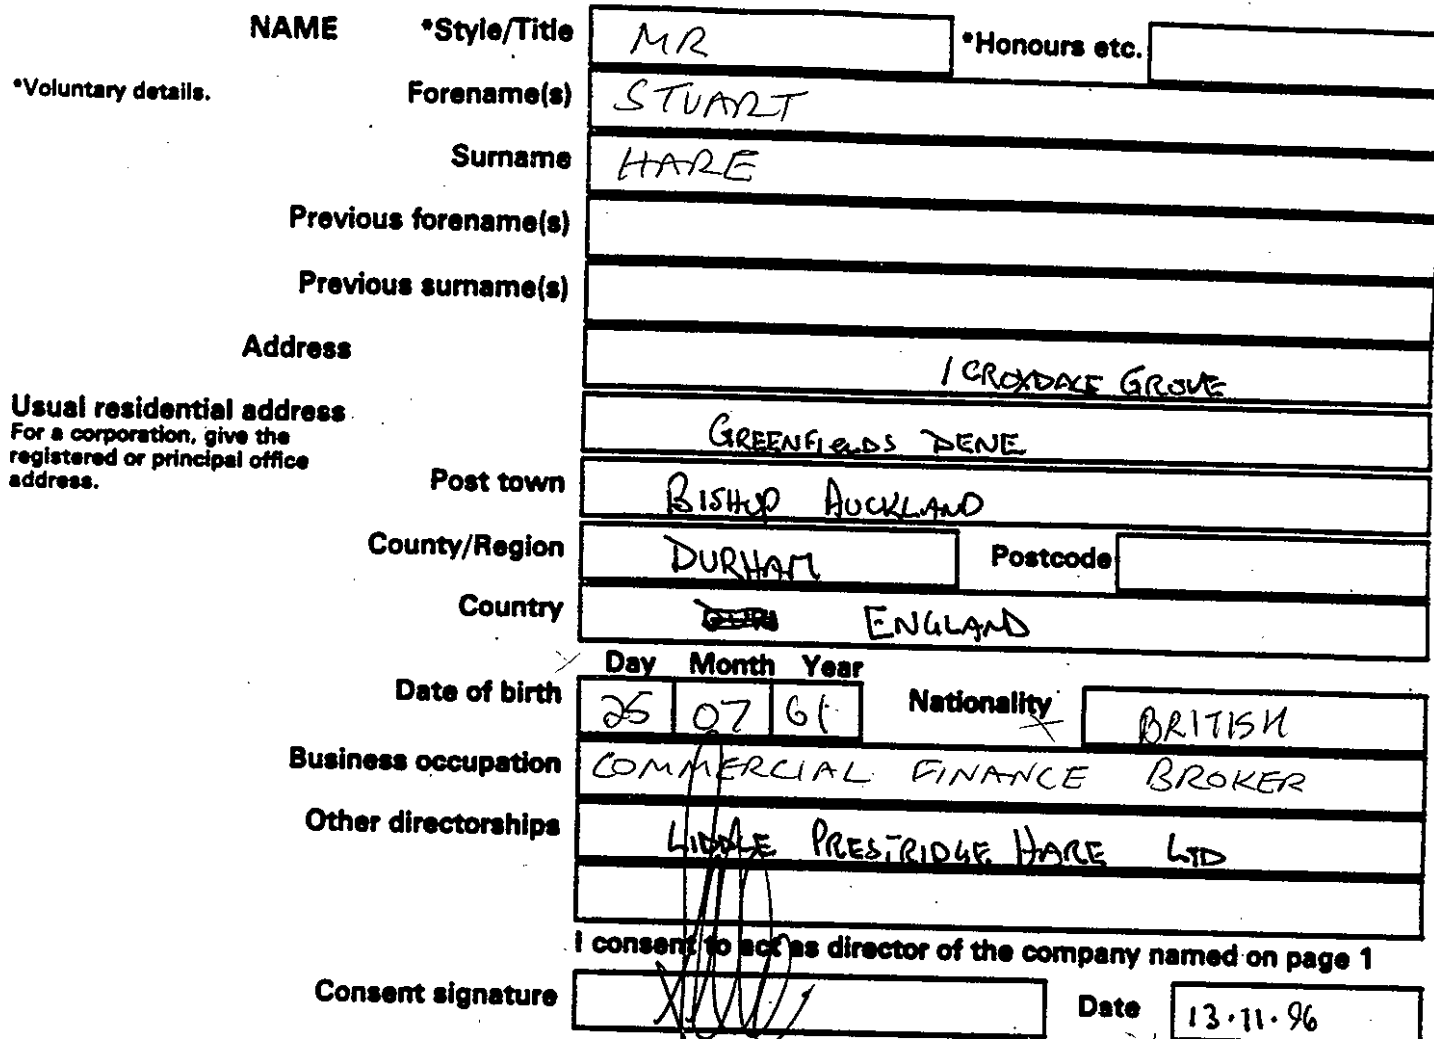 NAME *Style/Title MR *Honours etc.
*Voluntary details. Forename(s) STUART
Surname HARE
Previous forename(s)
Previous surname(s)
Address 1 CROXDALE GROVE
Usual residential address
For a corporation, give the
registered or principal office
address.
GREENFIELDS DENE
Post town BISHOP AUCKLAND
County/Region DURHAM Postcode
Country ENGLAND
Day Month Year
Date of birth 25 07 61 Nationality BRITISH
Business occupation COMMERCIAL FINANCE BROKER
Other directorships LIDDLE PRESTRIDGE HARE LTD
I consent to act as director of the company named on page 1
Consent signature Date 13.11.96